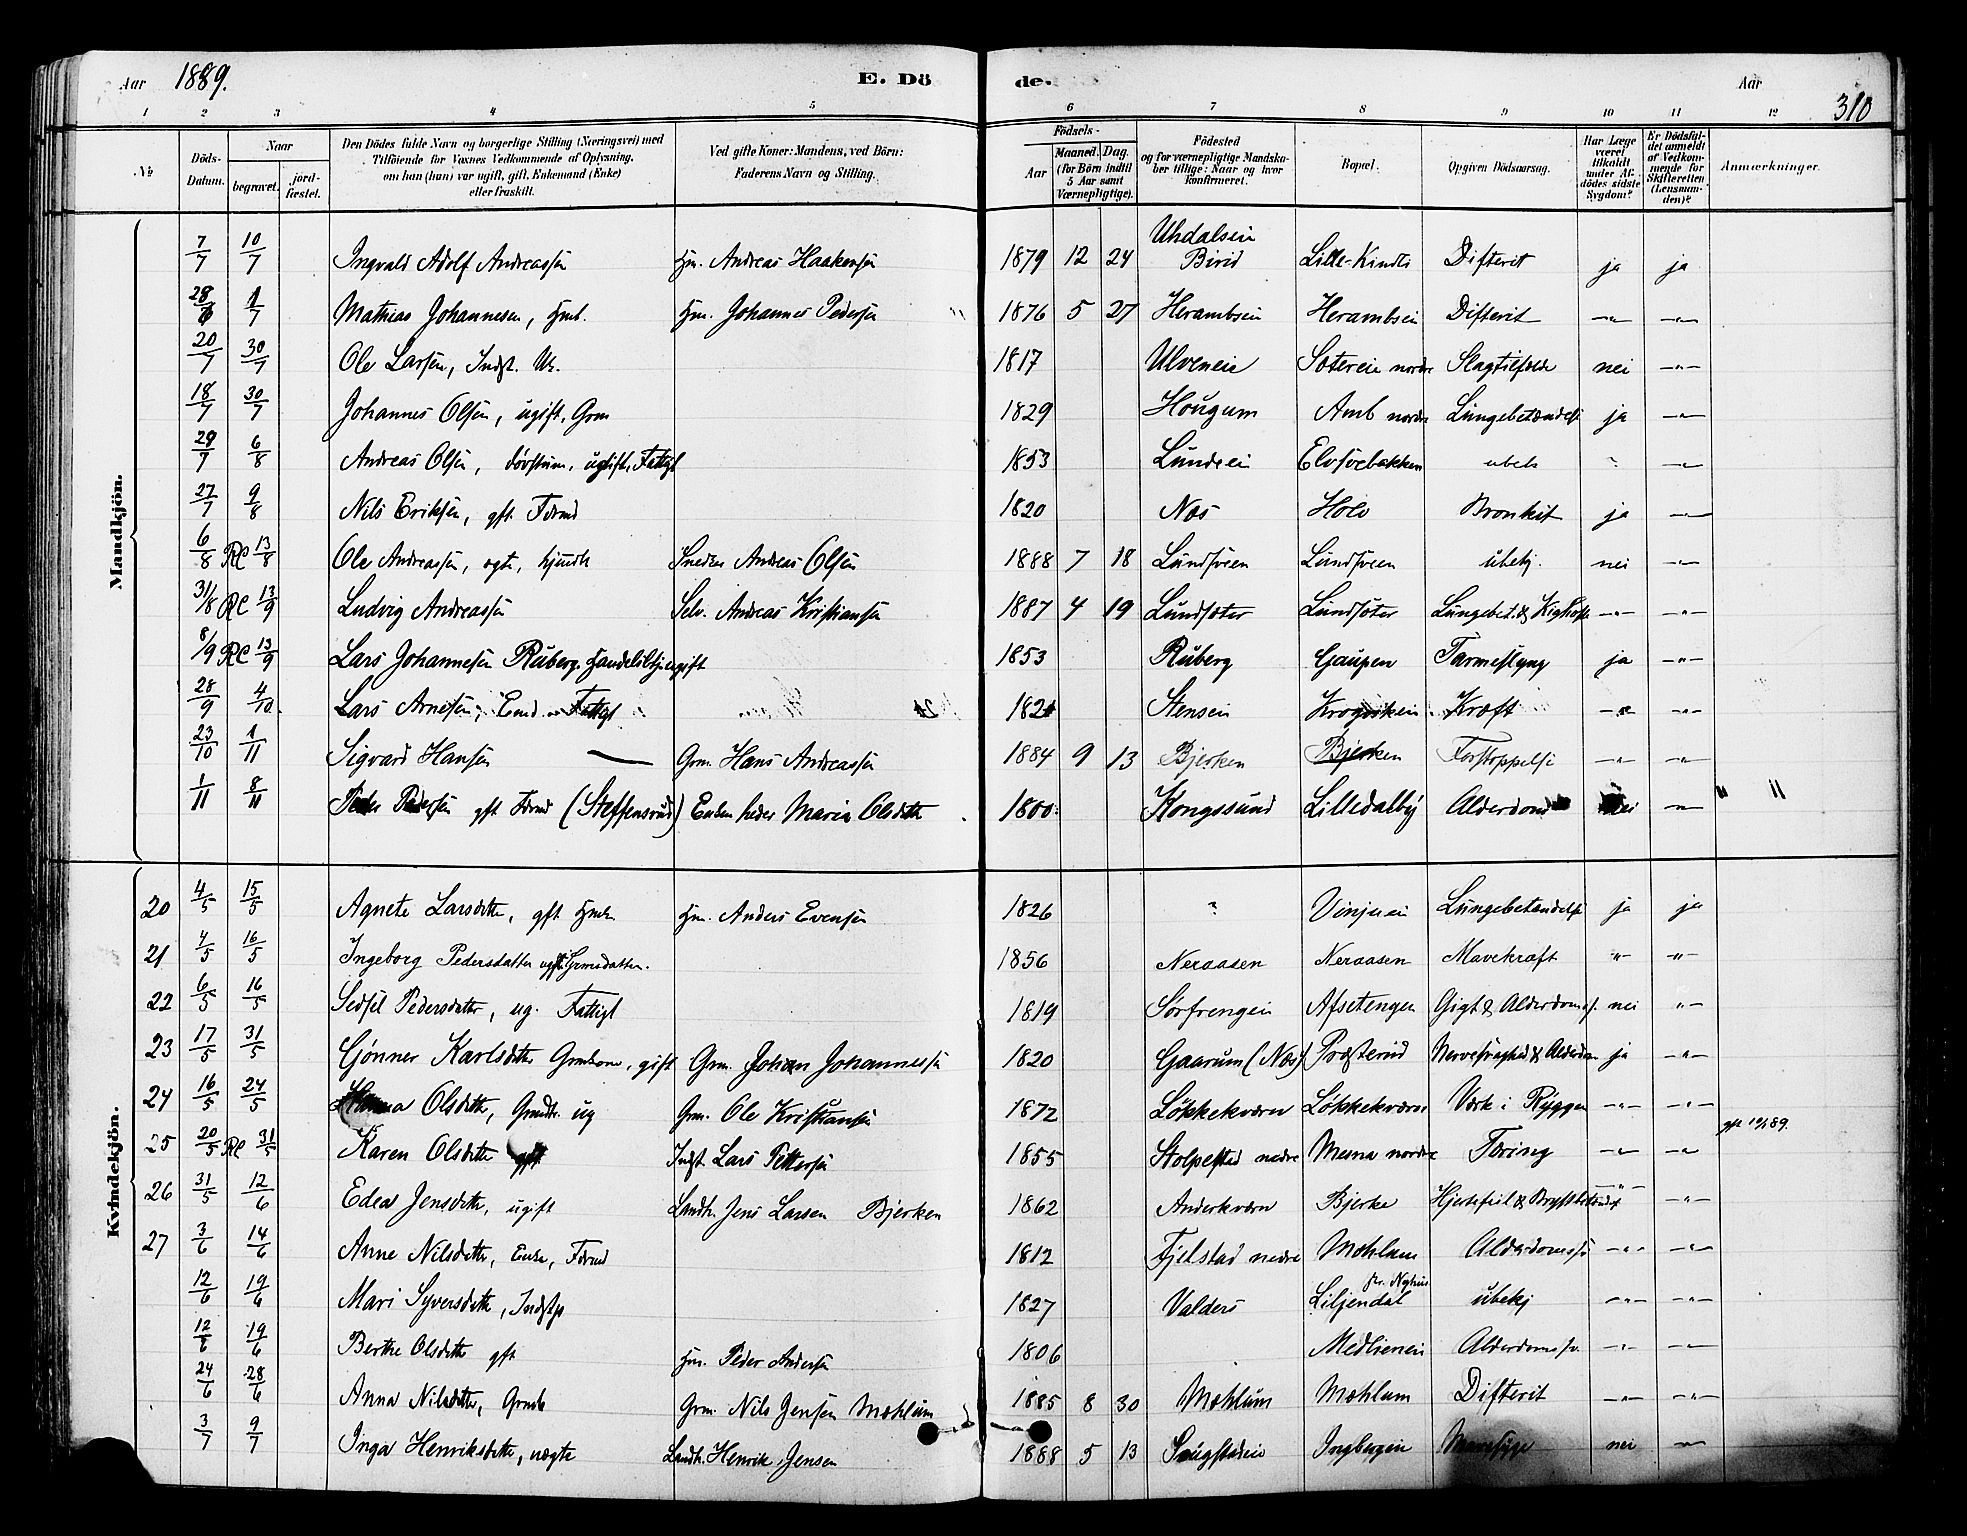 Aar 1889. E. Döde. Aar 310
1 2 3 4 5 6 7 8 9 10 11 12
No
Döds-Datum.
Naar
begravet.
jordfæstet.
Den Dödes fulde Navn og borgerlige Stilling (Næringsvei) med Tilföiende for Voxnes Vedkommende af Oplysning, om han (hun) var ugift, gift, Enkemand (Enke) eller fraskilt.
Ved gifte Koner: Mandens, ved Börn: Faderens Navn og Stilling.
Födsels-
Aar
Maaned. Dag.
(for Börn indtil 5 Aar samt Værnepligtige).
Födested og for værnepligtige Mandskaber tillige: Naar og hvor Konfirmeret.
Bopæl.
Opgiven Dödsaarsag.
Har Læge været tilkaldt under Afdödes sidste Sygdom?
Er Dödsfaldet anmeldt af Vedkommende for Skifteretten (Lensmanden)?
Anmærkninger.
Mandkjön.
7/7 10/7 Ingvald Adolf Andreassen Hm. Andreas Haakensen 1879 12 24 Birid Difterit ja ja
28/6 1/7 Mathias Johannesen, Hm. Johannes Pedersen 1876 5 27 Herambsei Herambsei Difterit -"- -"-
20/7 30/7 Ole Larsen, Indst. 1817 Ulveneie Sætereie nordre Slagtilfælde nei -"-
18/7 30/7 Johannes Olsen, ugift, Grm 1829 Hougum Amb nordre Lungebetændelse ja -"-
29/7 6/8 Andreas Olsen, døvstum, ugift, Fattigl 1853 Lundeei ubek -"-
27/7 9/8 Nils Eriksen, gft. Førmd 1820 Næs Holo Bronkit ja -"-
6/8 Re 13/8 Ole Andreassen, ægte, hjemdt Snedker Andreas Olsen 1888 7 18 Lundsveen Lundsveen ubekj. nei -"-
31/8 Re 13/9 Ludvig Andreassen Selv. Andreas Kristiansen 1887 4 19 Lundsæter Lundsæter Lungebet. & Kighoste -"- -"-
8/9 Re 13/9 Lars Johannesen Ruberg, ugift 1853 Ruberg Gaupen Tarmeslyng ja -"-
28/9 4/10 Lars Arnesen, Enkd Fattigl Stensei Kræft -"- -"-
23/10 1/11 Sigvard Hansen Grm. Hans Andreassen 1884 9 13 Bjerken Bjerken Forstoppelse -"- -"-
1/11 8/11 Peder Pedersen gft Førmd (Steffensrud) Enken heder Maria Olsdtr 1800 Kongssund Lilledalby Alderdoms nei -"- " "
Kvindekjön.
20 4/5 15/5 Agnete Larsdtr, gft Hm. Anders Evensen 1826 ? Vinjuei Lungebetændelse ja ja
21 4/5 16/5 Ingeborg Pedersdatter ugft Grmsdatter. 1856 Neraasen Neraasen Mavekræft -"- -"-
22 6/5 16/5 Sedsel Pedersdatter, ug. Fattigl 1819 Sørfrengen Afsetengen Gigt & Alderdomss. nei "-
23 17/5 31/5 Gjønner Karlsdtr Grmkone, gift Grm. Johan Johannessen 1820 Gaarum (Næs) Præsterud Nervesvaghed & Alderdom ja -"-
24 16/5 24/5 Hanna Olsdtr, Grmdtr. ug Grm. Ole Kristiansen 1872 Løkkekværn Løkkekværn Værk i Ryggen -"- -"-
25 20/5 Re 31/5 Karen Olsdtr gft Indst. Lars Pettersen 1855 Stolpestad nedre Messna nordre Tæring -"- -"-
26 31/5 12/6 Edea Jensdtr, ugift Landh. Jens Larsen Bjerken 1862 Anderkværn Bjerke Hjertefeil & Brystbetændelse -"- -"-
27 3/6 14/6 Anne Nilsdtr, Enke, Førmd 1812 Fjelstad nedre Mæhlum Alderdomss -"- -"-
12/6 19/6 Mari Syversdtr, Indstp 1827 Valders Liljendal ubekj -"- -"-
12/6 19/6 Berthe Olsdtr gft Hm. Peder Andersen 1806 Medlieneie Alderdomssv. -"- -"-
24/6 28/6 Anna Nilsdtr, Grmb Grm. Nils Jensen Mæhlum 1885 8 30 Mæhlum Mæhlum Difterit -"- -"-
3/7 9/7 Inga Henriksdtr, uægte Landh. Henrik Jensen 1888 5 13 Ingbergeie Mavesyge nei -"-